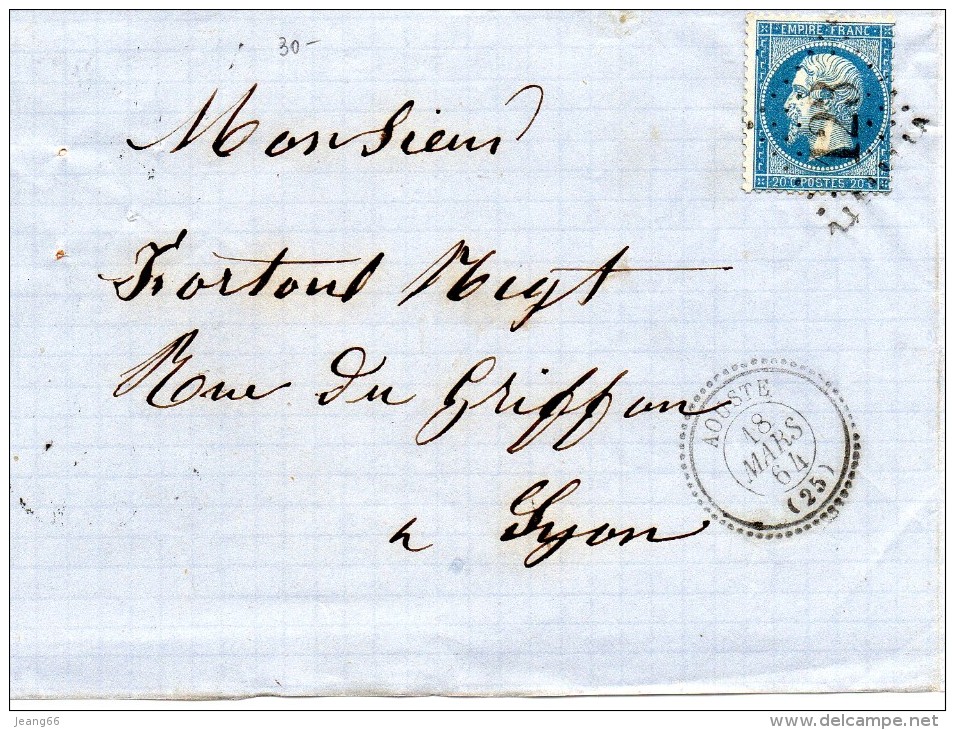 30-
EMPIRE FRANC
123
20 C POSTES 20 C
Monsieur
Fortoul Negt
Rue du Griffon
a Lyon
AOUSTE
18
MARS
64
(25)
jeang66
www.delcampe.net